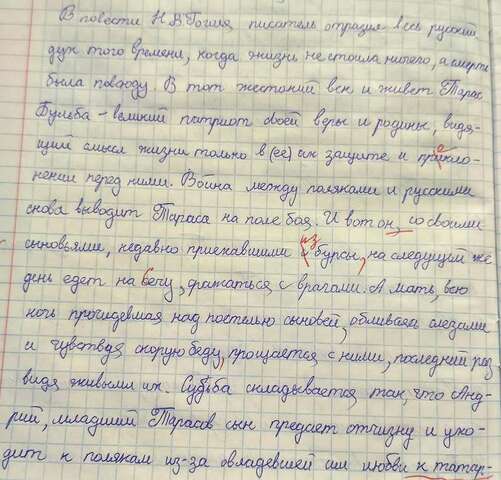 В повести Н.В.Гоголя, писатель отразил весь русский
дух того времени, когда жизнь не стоила ничего, а смерть
была повсюду. В тот жестокий век и живет Тарас
Бульба - великий патриот своей веры и родины, видя-
щий смысл жизни только в (её) их защите и прикло-
нении перед ними. Война между поляками и русскими
снова выводит Тараса на поле боя. И вот он, со своими
сыновьями, недавно приехавшими из бурсы, на следущий же
день едет на Сечу, сражаться с врагами. А мать, всю
ночь просидевшая над постелью сыновей, обливаясь слезами
и чувствуя скорую беду, прощается с ними, последний раз
видя живыми их. Судьба складывается так, что Анд-
рий, младший Тарасов сын предает отчизну и ухо-
дит к полякам из-за овладевшей им любви к татар-